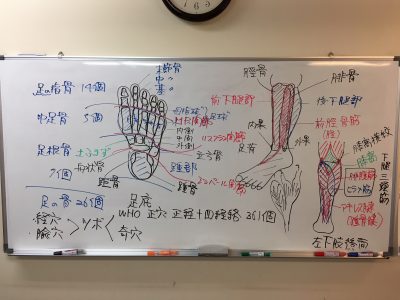 足の指骨 14個
中足骨 5個
足根骨
7個
足の骨 26個
末節骨
中〃
基〃
母指球
小指球
リスフラン関節
内側
中間
外側
土ふまず
舟状骨
立方骨
距骨
踵部
踵骨
ショパール関節
足底
WHO 正穴 正経十四経絡 361個
・経穴
・腧穴
＞ツボ＜
奇穴
脛骨
腓骨
前下腿部
後下腿部
内果
外果
足背
前脛骨筋
下腿三頭筋
腓腹筋
ヒラメ筋
アキレス腱
(踵骨腱)
左下腿後筋